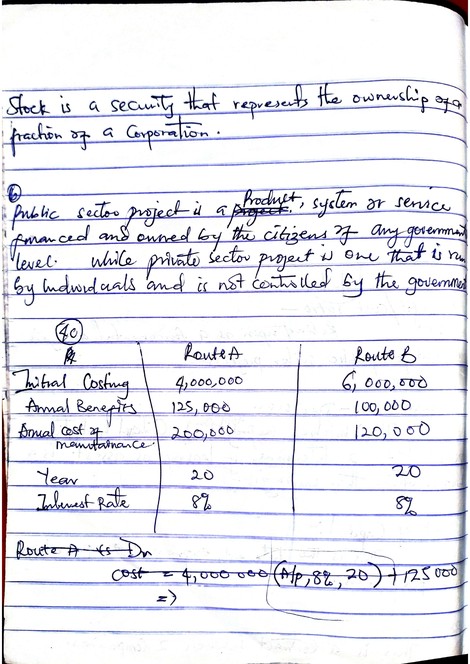 Stock is a security that represents the ownership of a
fraction of a Corporation.
6
Public sector project is a project. Product, system or service
financed and owned by the citizens of any government
level. while private sector project is one that is run
by individuals and is not controlled by the government
40
Route A Route B
Initial Costing 4,000,000 6,000,000
Annual Benefits 125,000 100,000
Annual cost of maintainance 200,000 120,000
Year 20 20
Interest Rate 8% 8%
Route A is Dn
Cost = 4,000 000 (A/p, 8%, 20) + 125000
=>